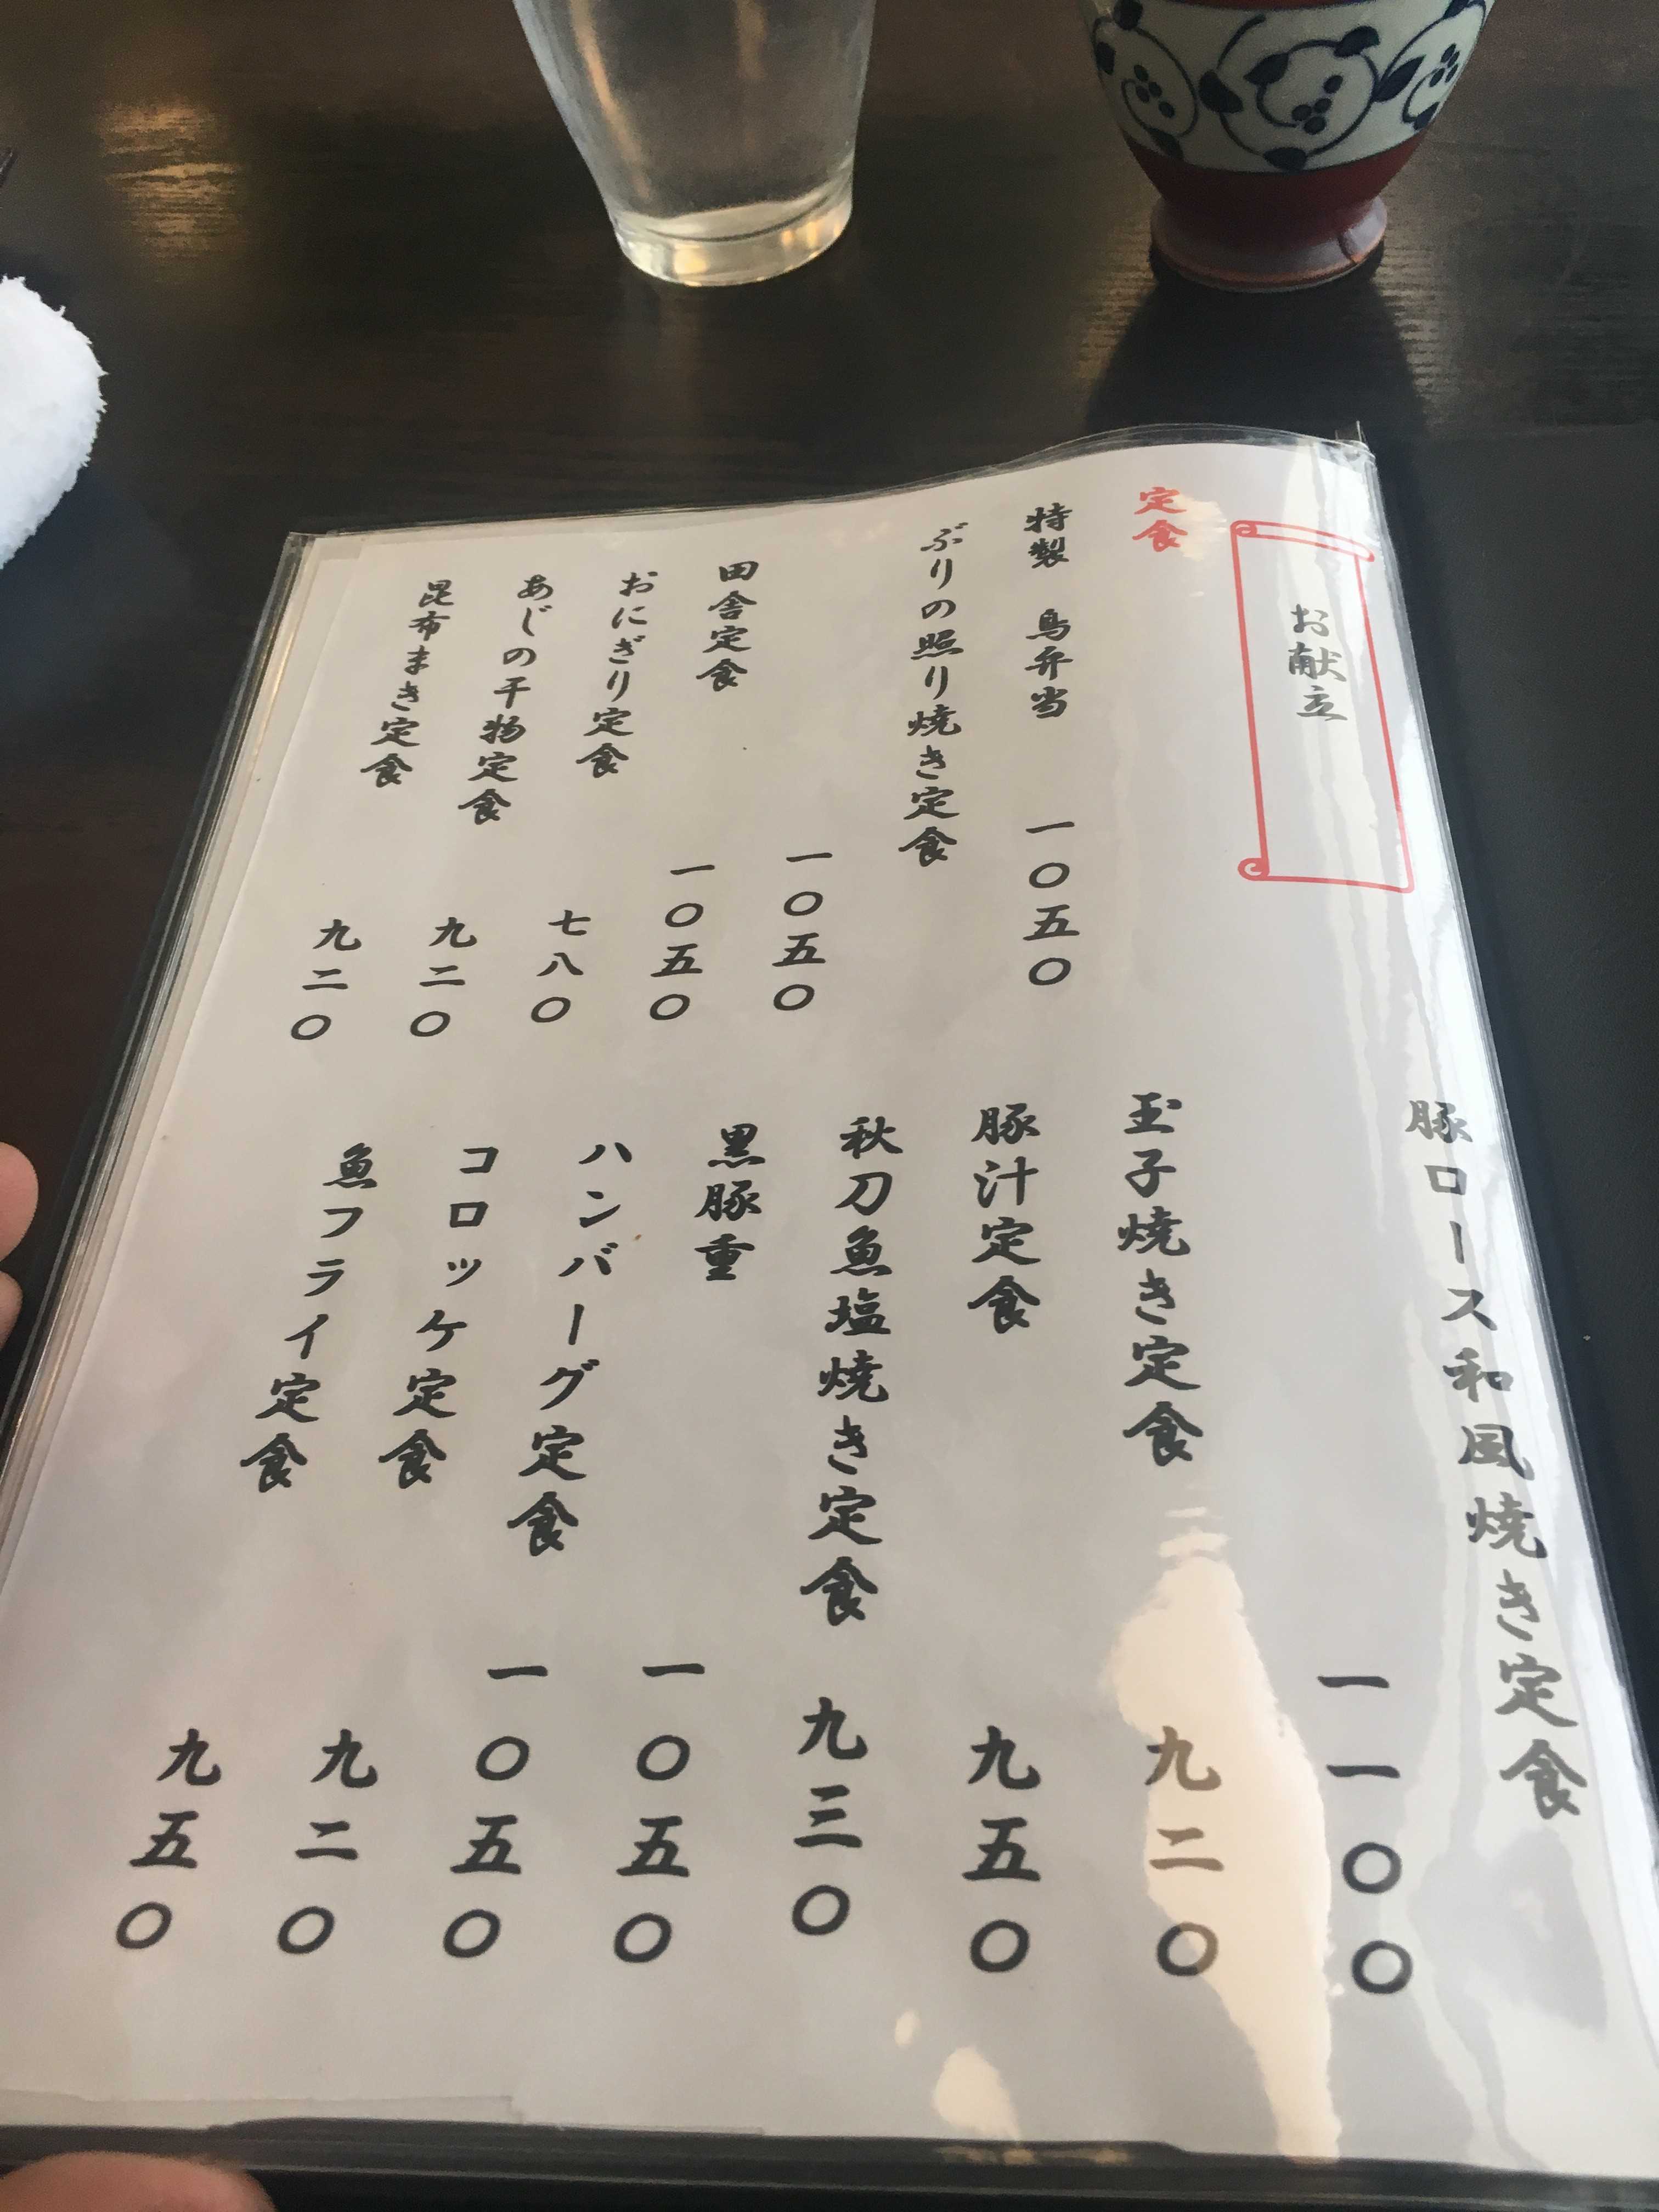 お献立
定食
特製 鳥弁当 一〇五〇
ぶりの照り焼き定食 一〇五〇
田舎定食 一〇五〇
おにぎり定食 七八〇
あじの干物定食 九二〇
昆布まき定食 九二〇
豚ロース和風焼き定食 一一〇〇
玉子焼き定食 九二〇
豚汁定食 九五〇
秋刀魚塩焼き定食 九三〇
黒豚重 一〇五〇
ハンバーグ定食 一〇五〇
コロッケ定食 九二〇
魚フライ定食 九五〇